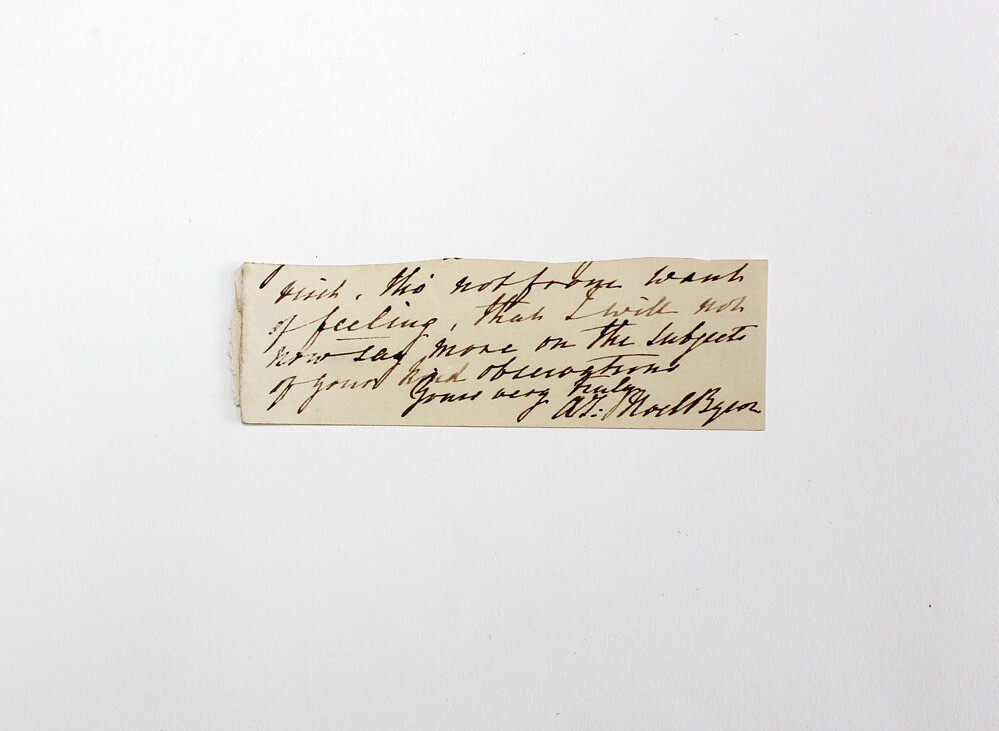 visit, tho' not from want
of feeling, that I will not
now say more on the subjects
of your kind observations
Yours very truly
A I: Noel Byron